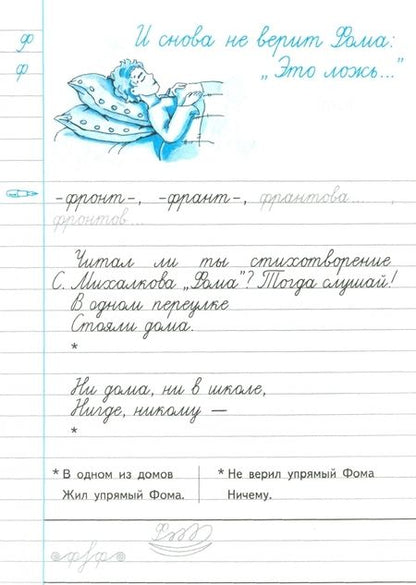 Ф
ф
И снова не верит Фома:
„Это ложь..."
-фронт-, -франт-, франтова..... ,
фронтов...
Читал ли ты стихотворение
С. Михалкова „Фома"? Тогда слушай!
В одном переулке
Стояли дома.
*
Ни дома, ни в школе,
Нигде, никому —
*
* В одном из домов
Жил упрямый Фома.
* Не верил упрямый Фома
Ничему.